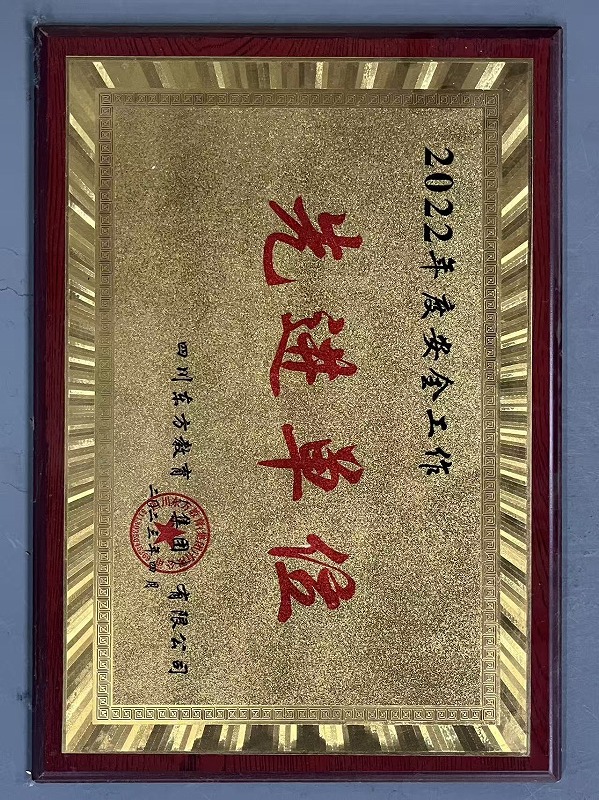 2022年度安全工作
先进单位
四川东方教育集团有限公司
二〇二三年四月